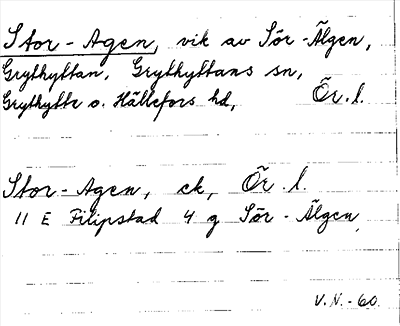 Stor-Agen, vik av Sör-Älgen,
Grythyttan, Grythyttans sn,
Grythytte o. Hällefors hd, Ör. l.
Stor-Agen, ek, Ör. l.
11 E Filipstad 4 g Sör-Älgen
V.N.-60